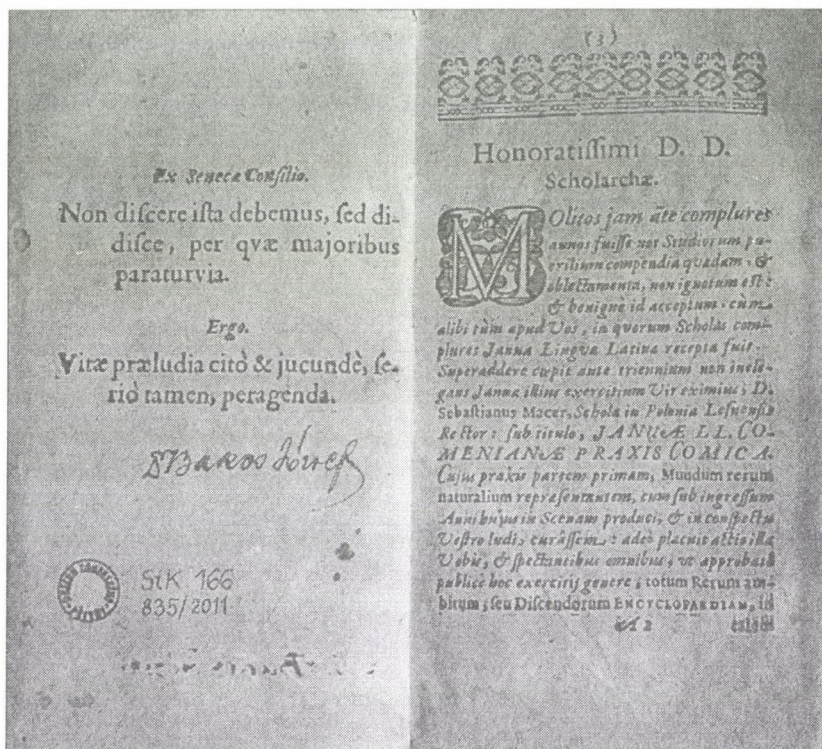 Ex Senecæ Consilio.
Non discere ista debemus, sed di-
disce, per qvæ majoribus
paraturvia.
Ergo.
Vitæ præludia citò & jucundè, se-
riò tamen, peragenda.
Bakos József
StK 166
835/2011
(3)
Honoratissimi D. D.
Scholarchæ.
MOlitos jam āte complures
annos fuisse nos Studiorum pu-
erilium compendia quædam, &
oblectamenta, non ignotum est:
& benignè id acceptum, cùm
alibi tùm apud Vos, in qvorum Scholas com-
plures Janua Lingvæ Latinæ recepta fuit.
Superaddere cupit ante triennium non inele-
gans Januæ illius exercitium Vir eximius, D.
Sebastianus Macer, Scholæ in Polonia Lesnensis
Rector: sub titulo, JANUÆ LL. CO-
MENIANÆ PRAXIS COMICA.
Cujus praxis partem primam, Mundum rerum
naturalium repræsentantem, cum sub ingressum
Anni hujus in Scenam produci, & in conspectu
Vestro ludi, curâssem: adeò placuit actio illa
Vobis, & spectantibus omnibus, ut approbato
publicè hoc exercitij genere, totum Rerum am-
bitum, seu Discendorum ENCYCLOPÆDIAM, in
A 2